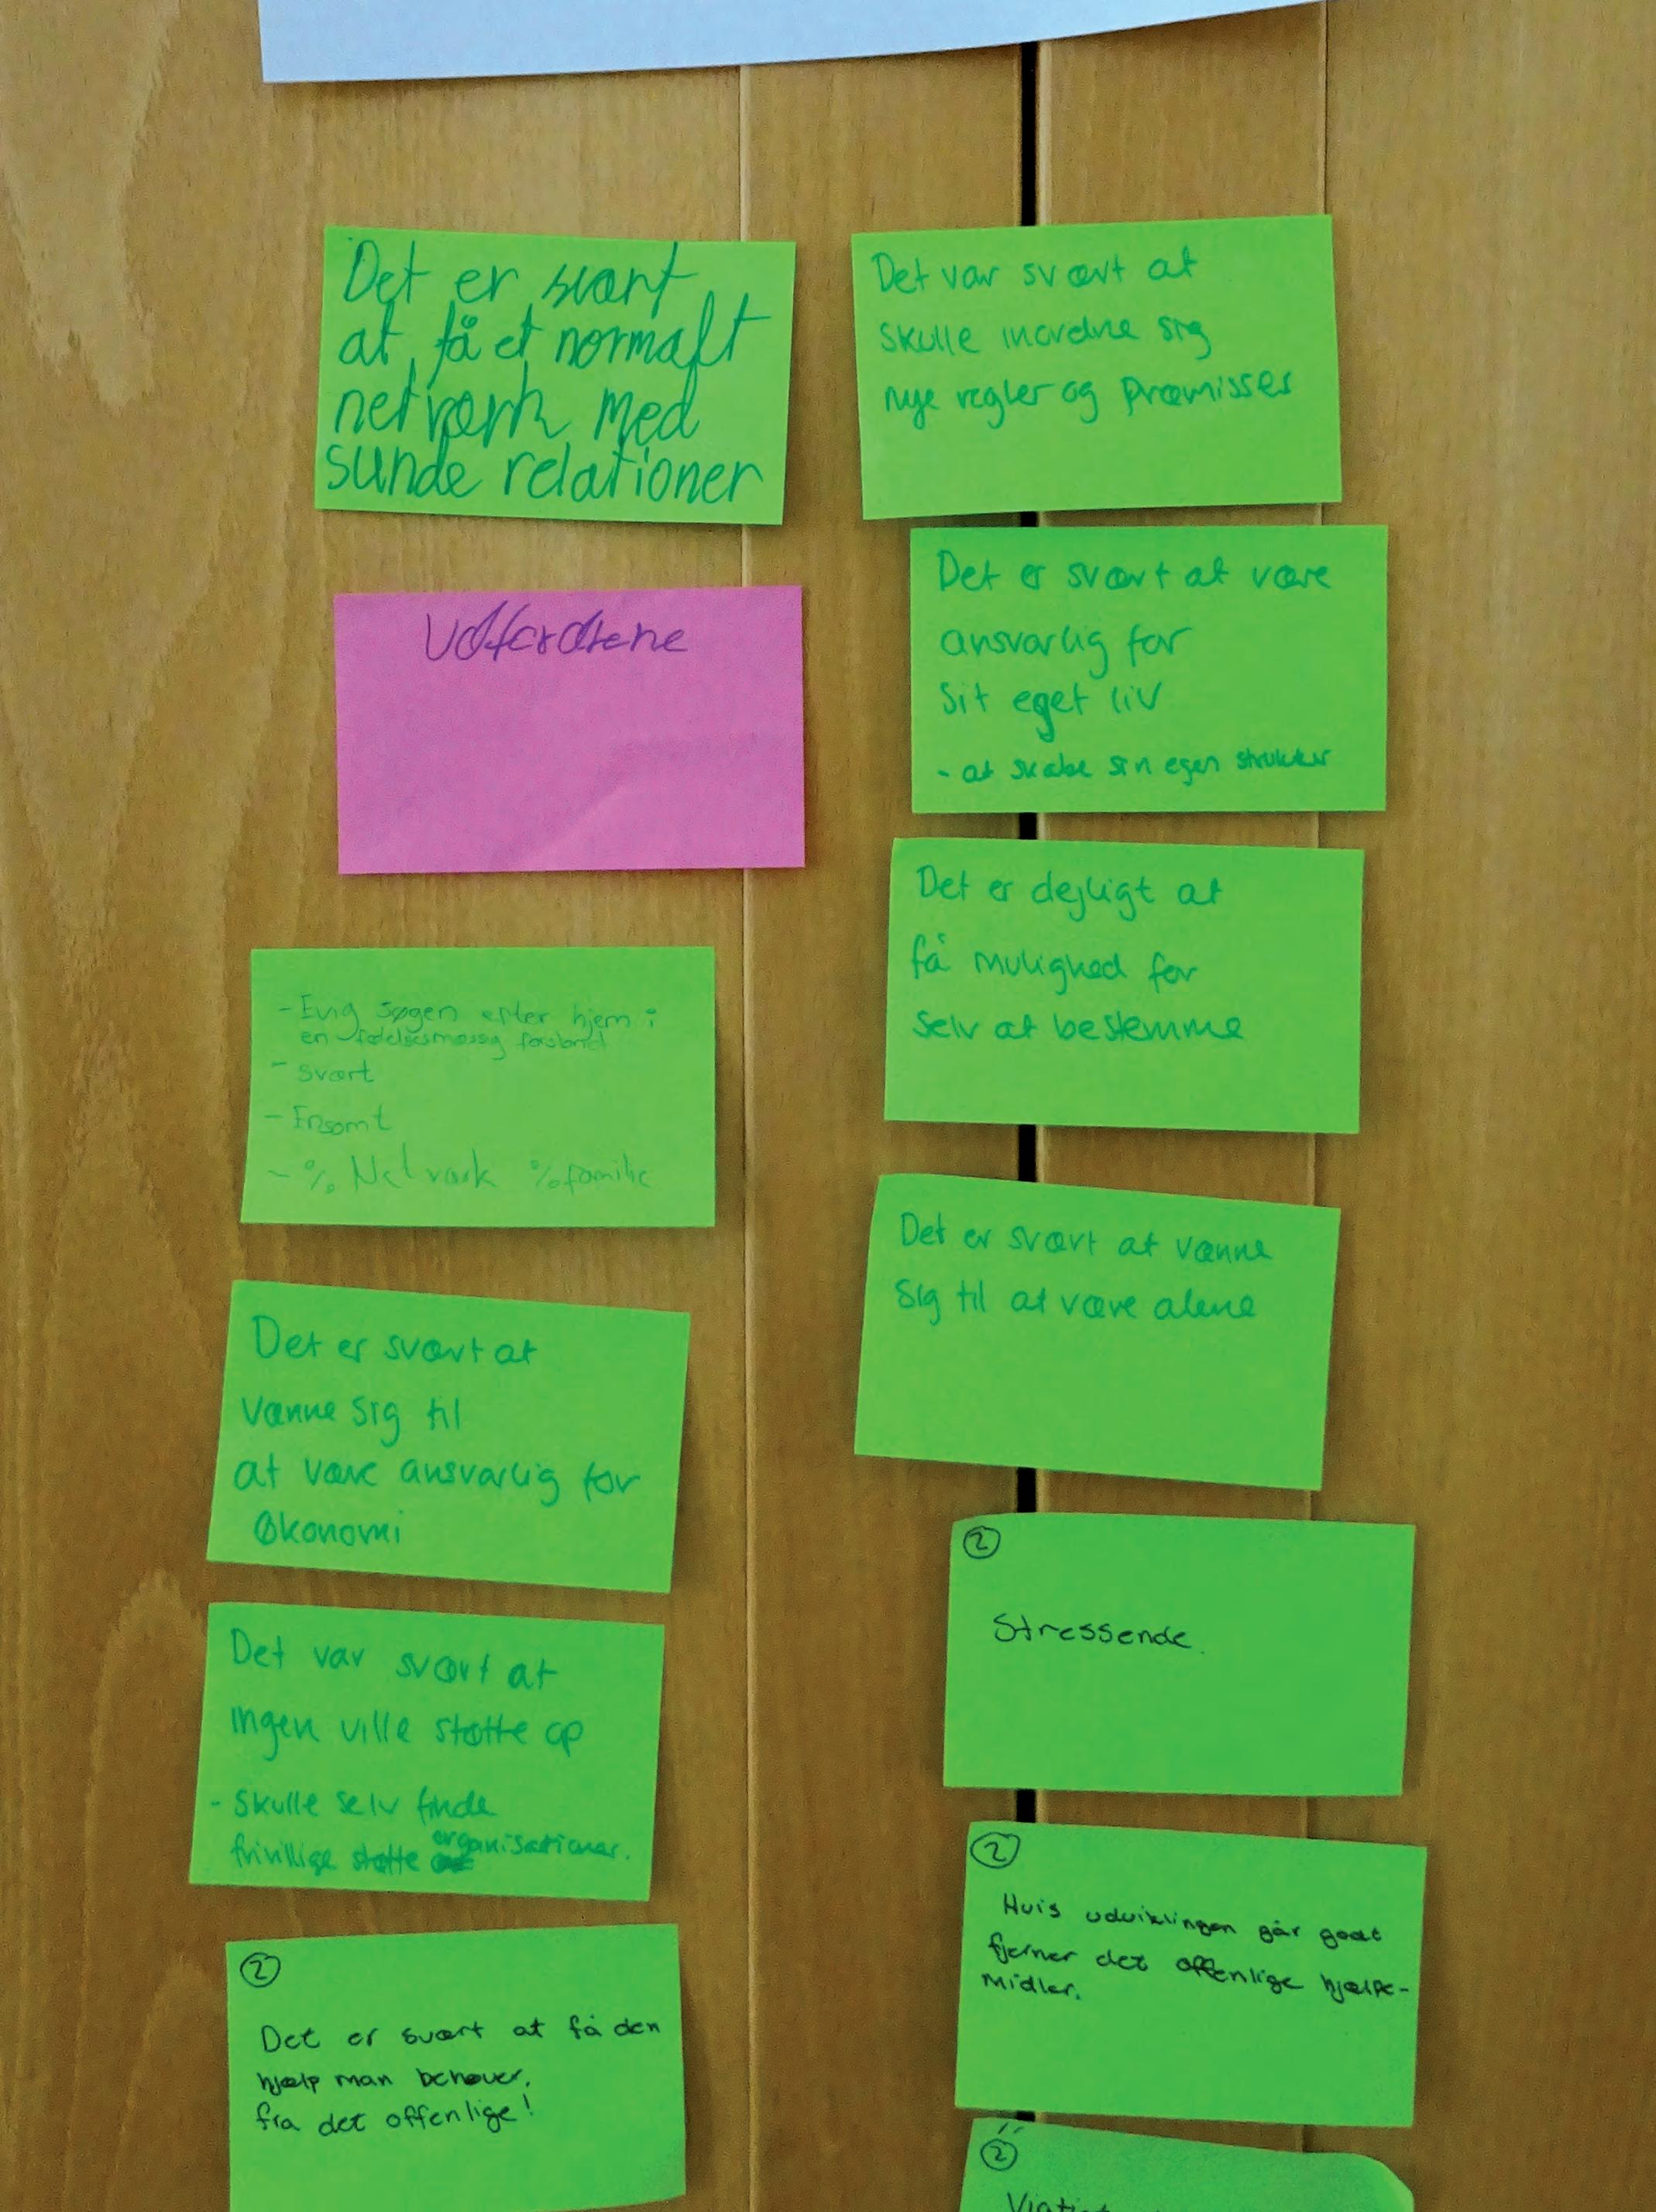 Det er svært
at få et normalt
netværk med
sunde relationer
Udfordrene
- Evig søgen efter hjem i
en følelsesmæssig forstand
- svært
- Ensomt
- % Netværk % familie
Det er svært at
vænne sig til
at være ansvarlig for
Økonomi
Det var svært at
ingen ville støtte op
- skulle selv finde
frivillige støtte organisationer.
②
Det er svært at få den
hjælp man behøver,
fra det offenlige!
Det var svært at
skulle inordne sig
nye regler og præmisser
Det er svært at være
ansvarlig for
sit eget liv
- at skabe sin egen struktur
Det er dejligt at
få mulighed for
selv at bestemme
Det er svært at vænne
sig til at være alene
②
Stressende.
②
Hvis udviklingen går godt
fjerner det offenlige hjælpe-
midler.
②